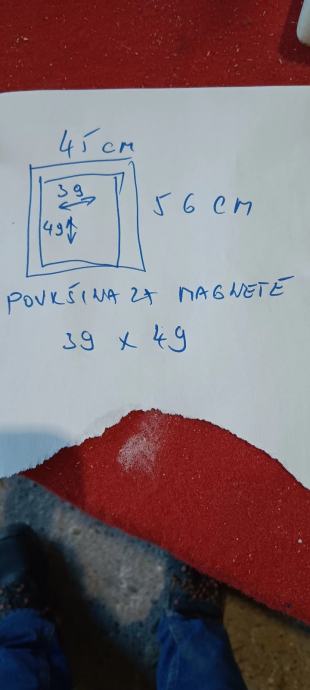 45 cm
39
56 CM
49
POVRŠINA ZA MAGNETE
39 x 49